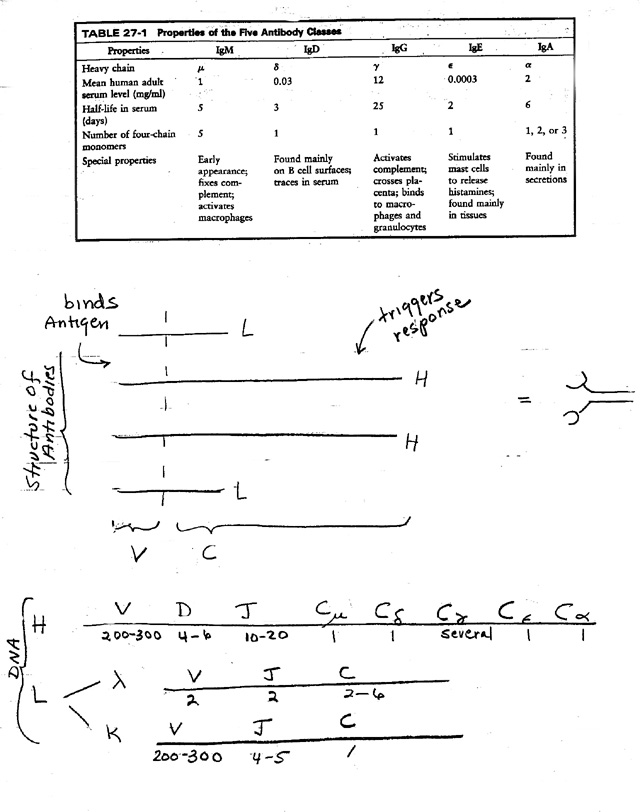 TABLE 27-1 Properties of the Five Antibody Classes
Properties IgM IgD IgG IgE IgA
Heavy chain μ δ γ ε α
Mean human adult serum level (mg/ml) 1 0.03 12 0.0003 2
Half-life in serum (days) 5 3 25 2 6
Number of four-chain monomers 5 1 1 1 1, 2, or 3
Special properties
Early appearance; fixes complement; activates macrophages
Found mainly on B cell surfaces; traces in serum
Activates complement; crosses placenta; binds to macrophages and granulocytes
Stimulates mast cells to release histamines; found mainly in tissues
Found mainly in secretions
binds
Antigen
L
triggers
response
H
Structure of
Antibodies
=
H
L
V C
DNA
H
V D J Cμ Cδ Cγ Cε Cα
200-300 4-6 10-20 1 1 several 1 1
L
λ V J C
2 2 2-6
K V J C
200-300 4-5 1